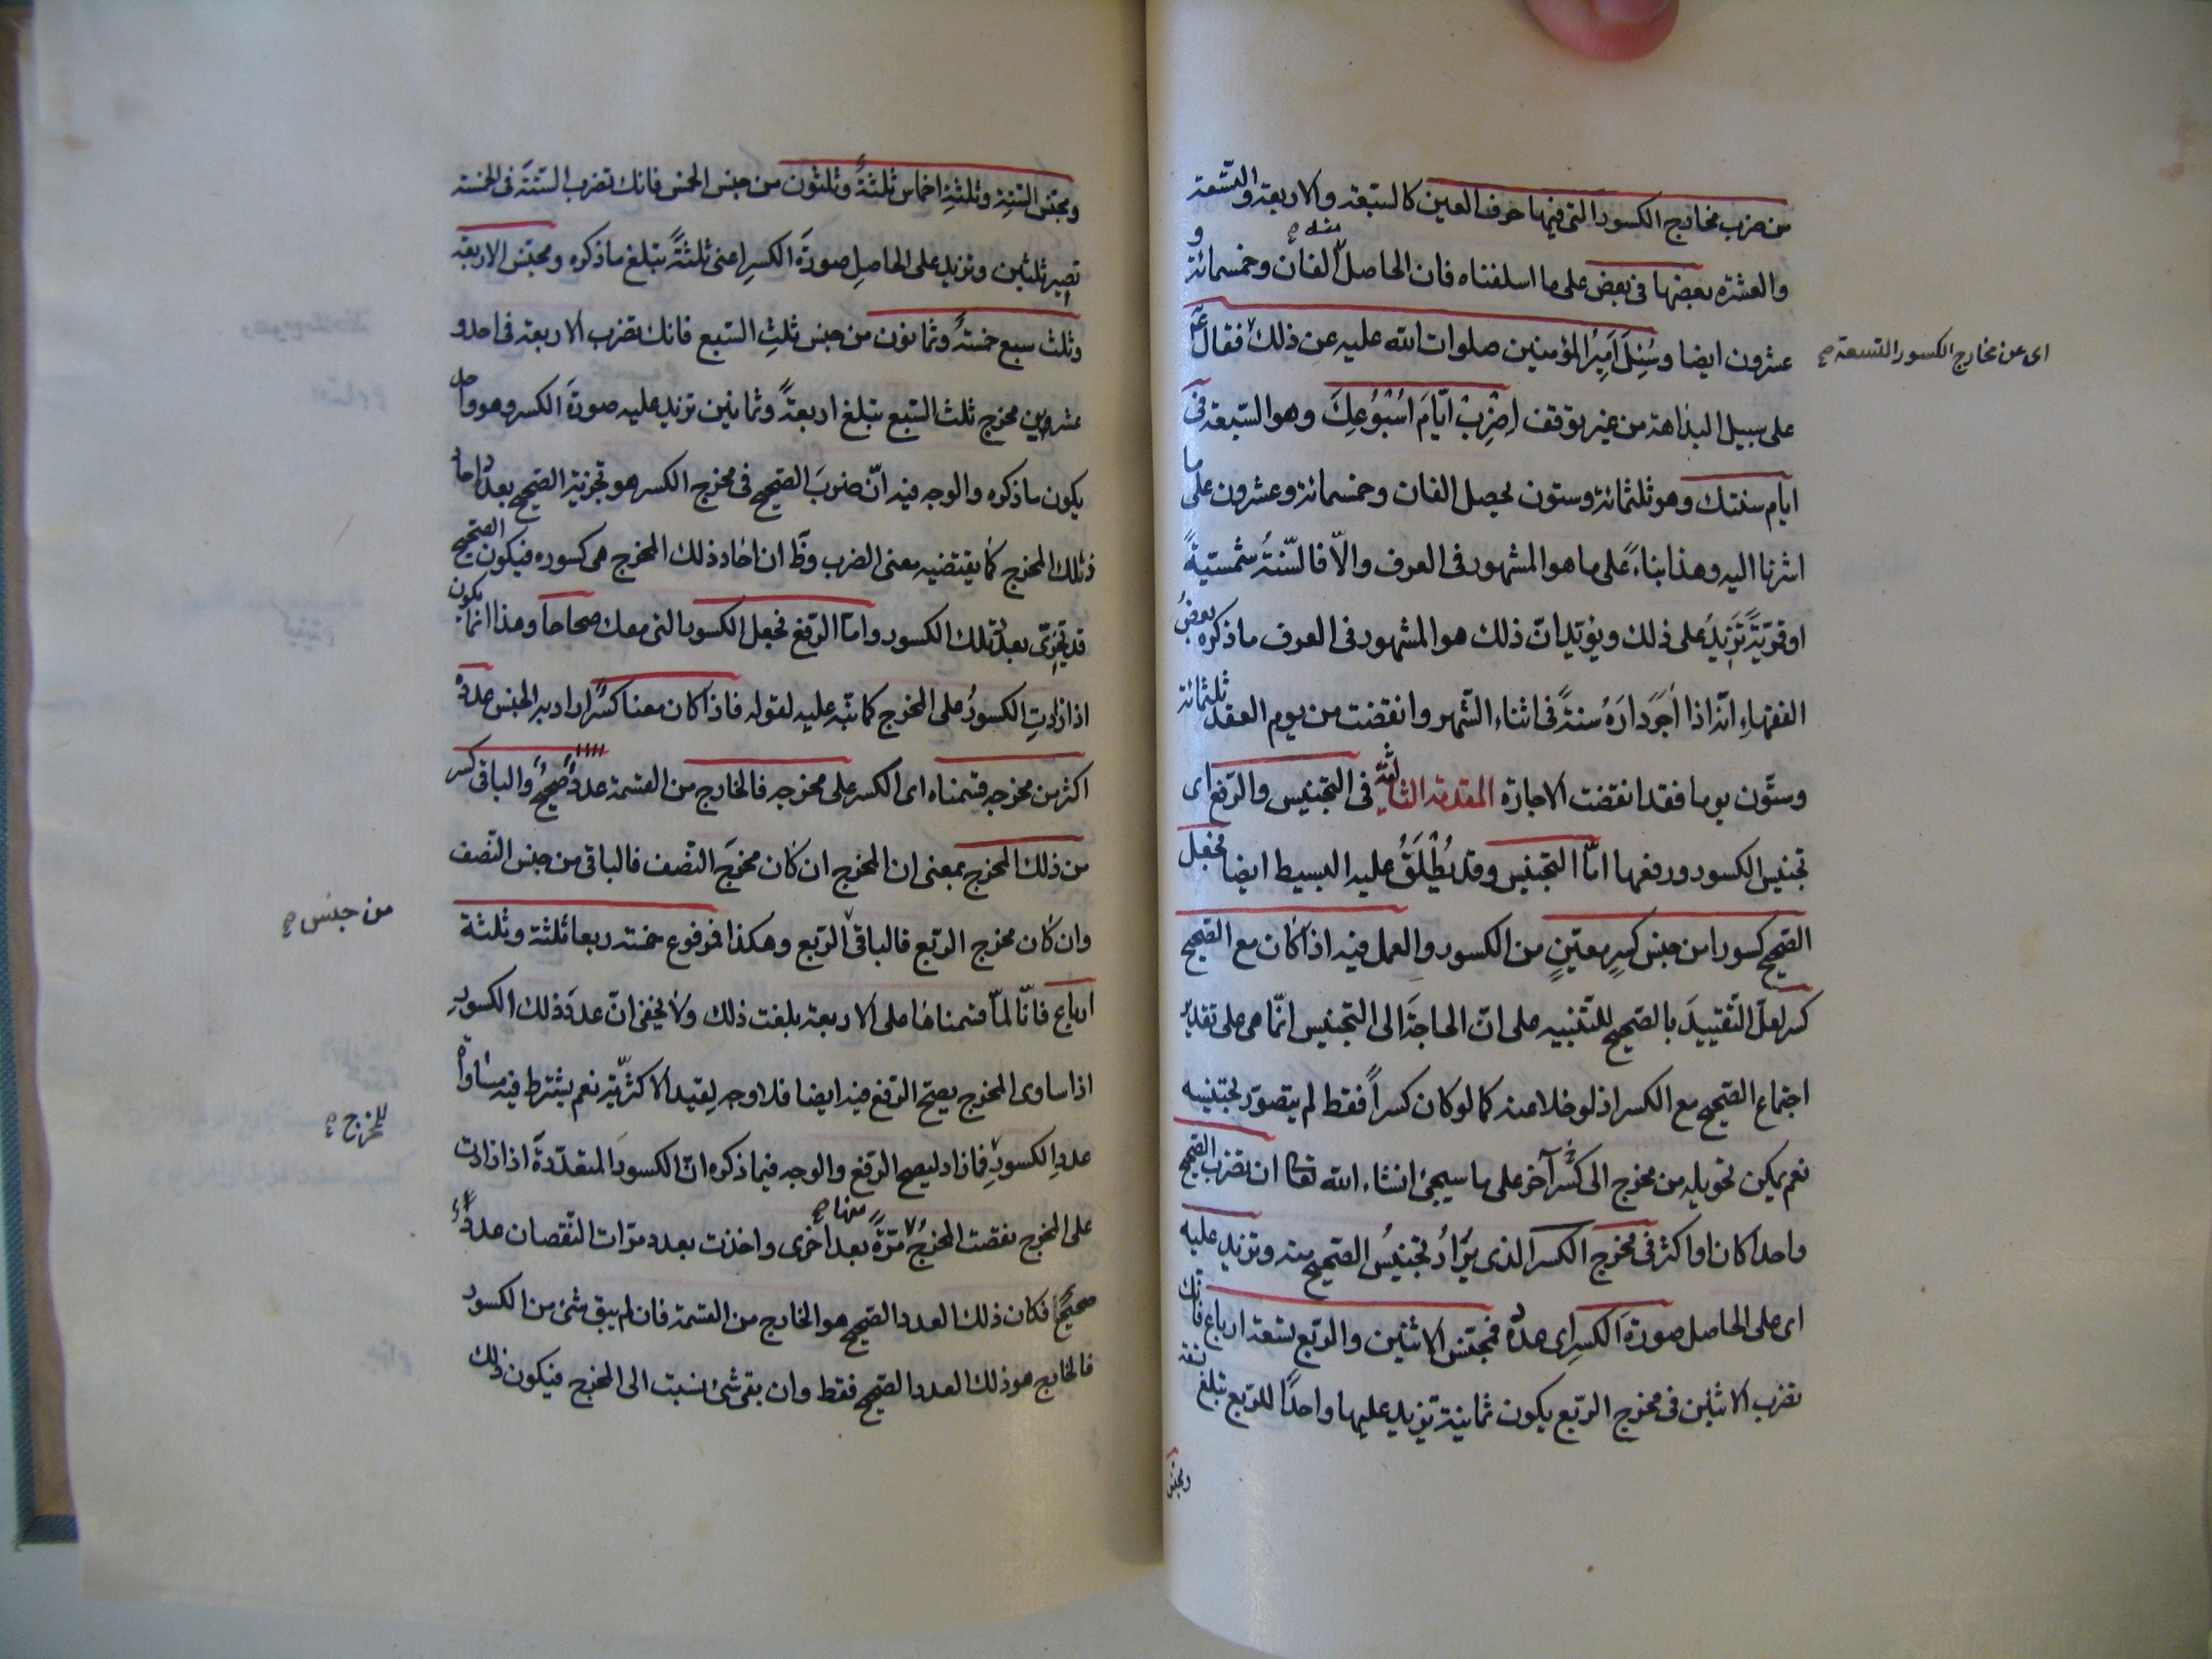 من ضرب مخارج الكسور التى فيها حرف العين كالسبعة والاربعة والتسعة
والعشرة بعضها فى بعض على ما اسلفناه فان الحاصل منه الفان وخمسمائة و
عشرون ايضا وسُئِلَ اَمِيرُ المؤمنين صلوات الله عليه عن ذلك فقال ع
اى عن مخارج الكسور التسعة صح
على سبيل البداهة من غير توقف اِضْرِبْ ايّامَ اُسْبُوعِكَ وهو السّبعة فى
ايام سنتك وهو ثلثمائة وستون يحصل الفان وخمسمائة وعشرون على ما
اشرنا اليه وهذا بناءً على ما هو المشهور فى العرف والّا فالسّنةُ شمسيّةً
او قمريّةً تَزِيدُ على ذلك ويؤيّد انّ ذلك هو المشهور فى العرف ما ذكره بعضُ
الفقهاءِ انّه اذا آجَرَ دارَهُ سنةً فى اثناء الشّهر وانقضت من يوم العقد ثلثمائة
وستّون يوما فقد انقضت الاجارة المقدمة الثالثة فى التجنيس والرّفع اى
تجنيس الكسور ورفعها امّا التجنيس وقد يُطْلَقُ عليه البسيط ايضا فجعل
الصحيح كسورا من جنس كسرٍ معيّنٍ من الكسور والعمل فيه اذا كان مع الصحيح
كسر لعلّ التّقييدَ بالصّحيح للتّنبيه على انّ الحاجةَ الى التجنيس انّما هى على تقدير
اجتماع الصّحيح مع الكسر اذ لو خلا عنه كما لو كان كسراً فقط لم يتصوّر تجنيسه
نعم يمكن تحويله من مخرج الى كسر آخر على ما سيجئ انشاء الله تعا ان تضرب الصّحيح
واحداً كان او اكثر فى مخرج الكسر الذى يُرَادُ تجنيسُ الصّحيح منه وتزيد عليه
اى على الحاصل صورةَ الكسرِ اى عددَه فمجنّس الاثنين والرّبع تسعة ارباع فانّك
تضرب الاثنين فى مخرج الرّبع يكون ثمانية تزيد عليها واحداً للرّبع تبلغ تسعة
ومجنّس
ومجنّس السّتةِ وثلثةِ اخماس ثلثةٌ وثلثون من جنس الخمس فانك تضرب السّتة فى الخمسة
تصير ثلثين وتزيد على الحاصلِ صورةَ الكسرِ اعنى ثلثةً تبلغ ما ذكره ومجنّس الاربعة
وثلث سبع خمسةٌ وثمانون من جنس ثلثِ السّبع فانك تضرب الاربعة فى احد و
عشرين مخرج ثلث السّبع تبلغ اربعةً وثمانين تزيد عليه صورةَ الكسر وهو واحد
يكون ما ذكره والوجه فيه انّ ضربَ الصّحيح فى مخرج الكسر هو تجزية الصّحيح بعدد احاد
ذلك المخرج كما يقتضيه معنى الضرب وظ ان احاد ذلك المخرج هى كسوره فيكون الصّحيح
قد تجزّى بعدد تلك الكسور وامّا الرّفع فجعل الكسور التى معك صحاحاً وهذا انّما يكون
اذا زادتِ الكسورُ على المخرج كما نبّه عليه لقوله فاذا كان معنا كسرٌ اراد به الجنس عددُه
اكثر من مخرجه قسمناه اى الكسر على مخرجه فالخارج من القسمة عددٌ صحيحٌ والباقى كسر
من ذلك المخرج بمعنى ان المخرج ان كان مخرجَ النّصف فالباقى من جنس النّصف
وان كان مخرج الربع فالباقى الرّبع وهكذا فمرفوع خمسة ربعا ثلثة وثلثة
من جنس صح
ارباع فانّا لمّا قسمناها على الاربعة بلغت ذلك ولا يخفى انّ عددَ ذلك الكسورِ
اذا ساوى المخرج يصحّ الرّفع فيه ايضا فلا وجه لقيد الاكثريّة نعم يشترط فيه مساواة
عددِ الكسورِ فما زاد ليصح الرفع والوجه فيما ذكره انّ الكسورَ المتعدّدةَ اذا زادت
للمخرج صح
على المخرج نقصت المخرجُ منها مرّةً بعد اخرى واخذت بعدد مرّات النّقصان عدداً
صحيحاً فكان ذلك العدد الصّحيح هو الخارج من القسمة فان لم يبق شئ من الكسور
فالخارج هو ذلك العدد الصّحيح فقط وان بقى شئ نسبت الى المخرج فيكون ذلك